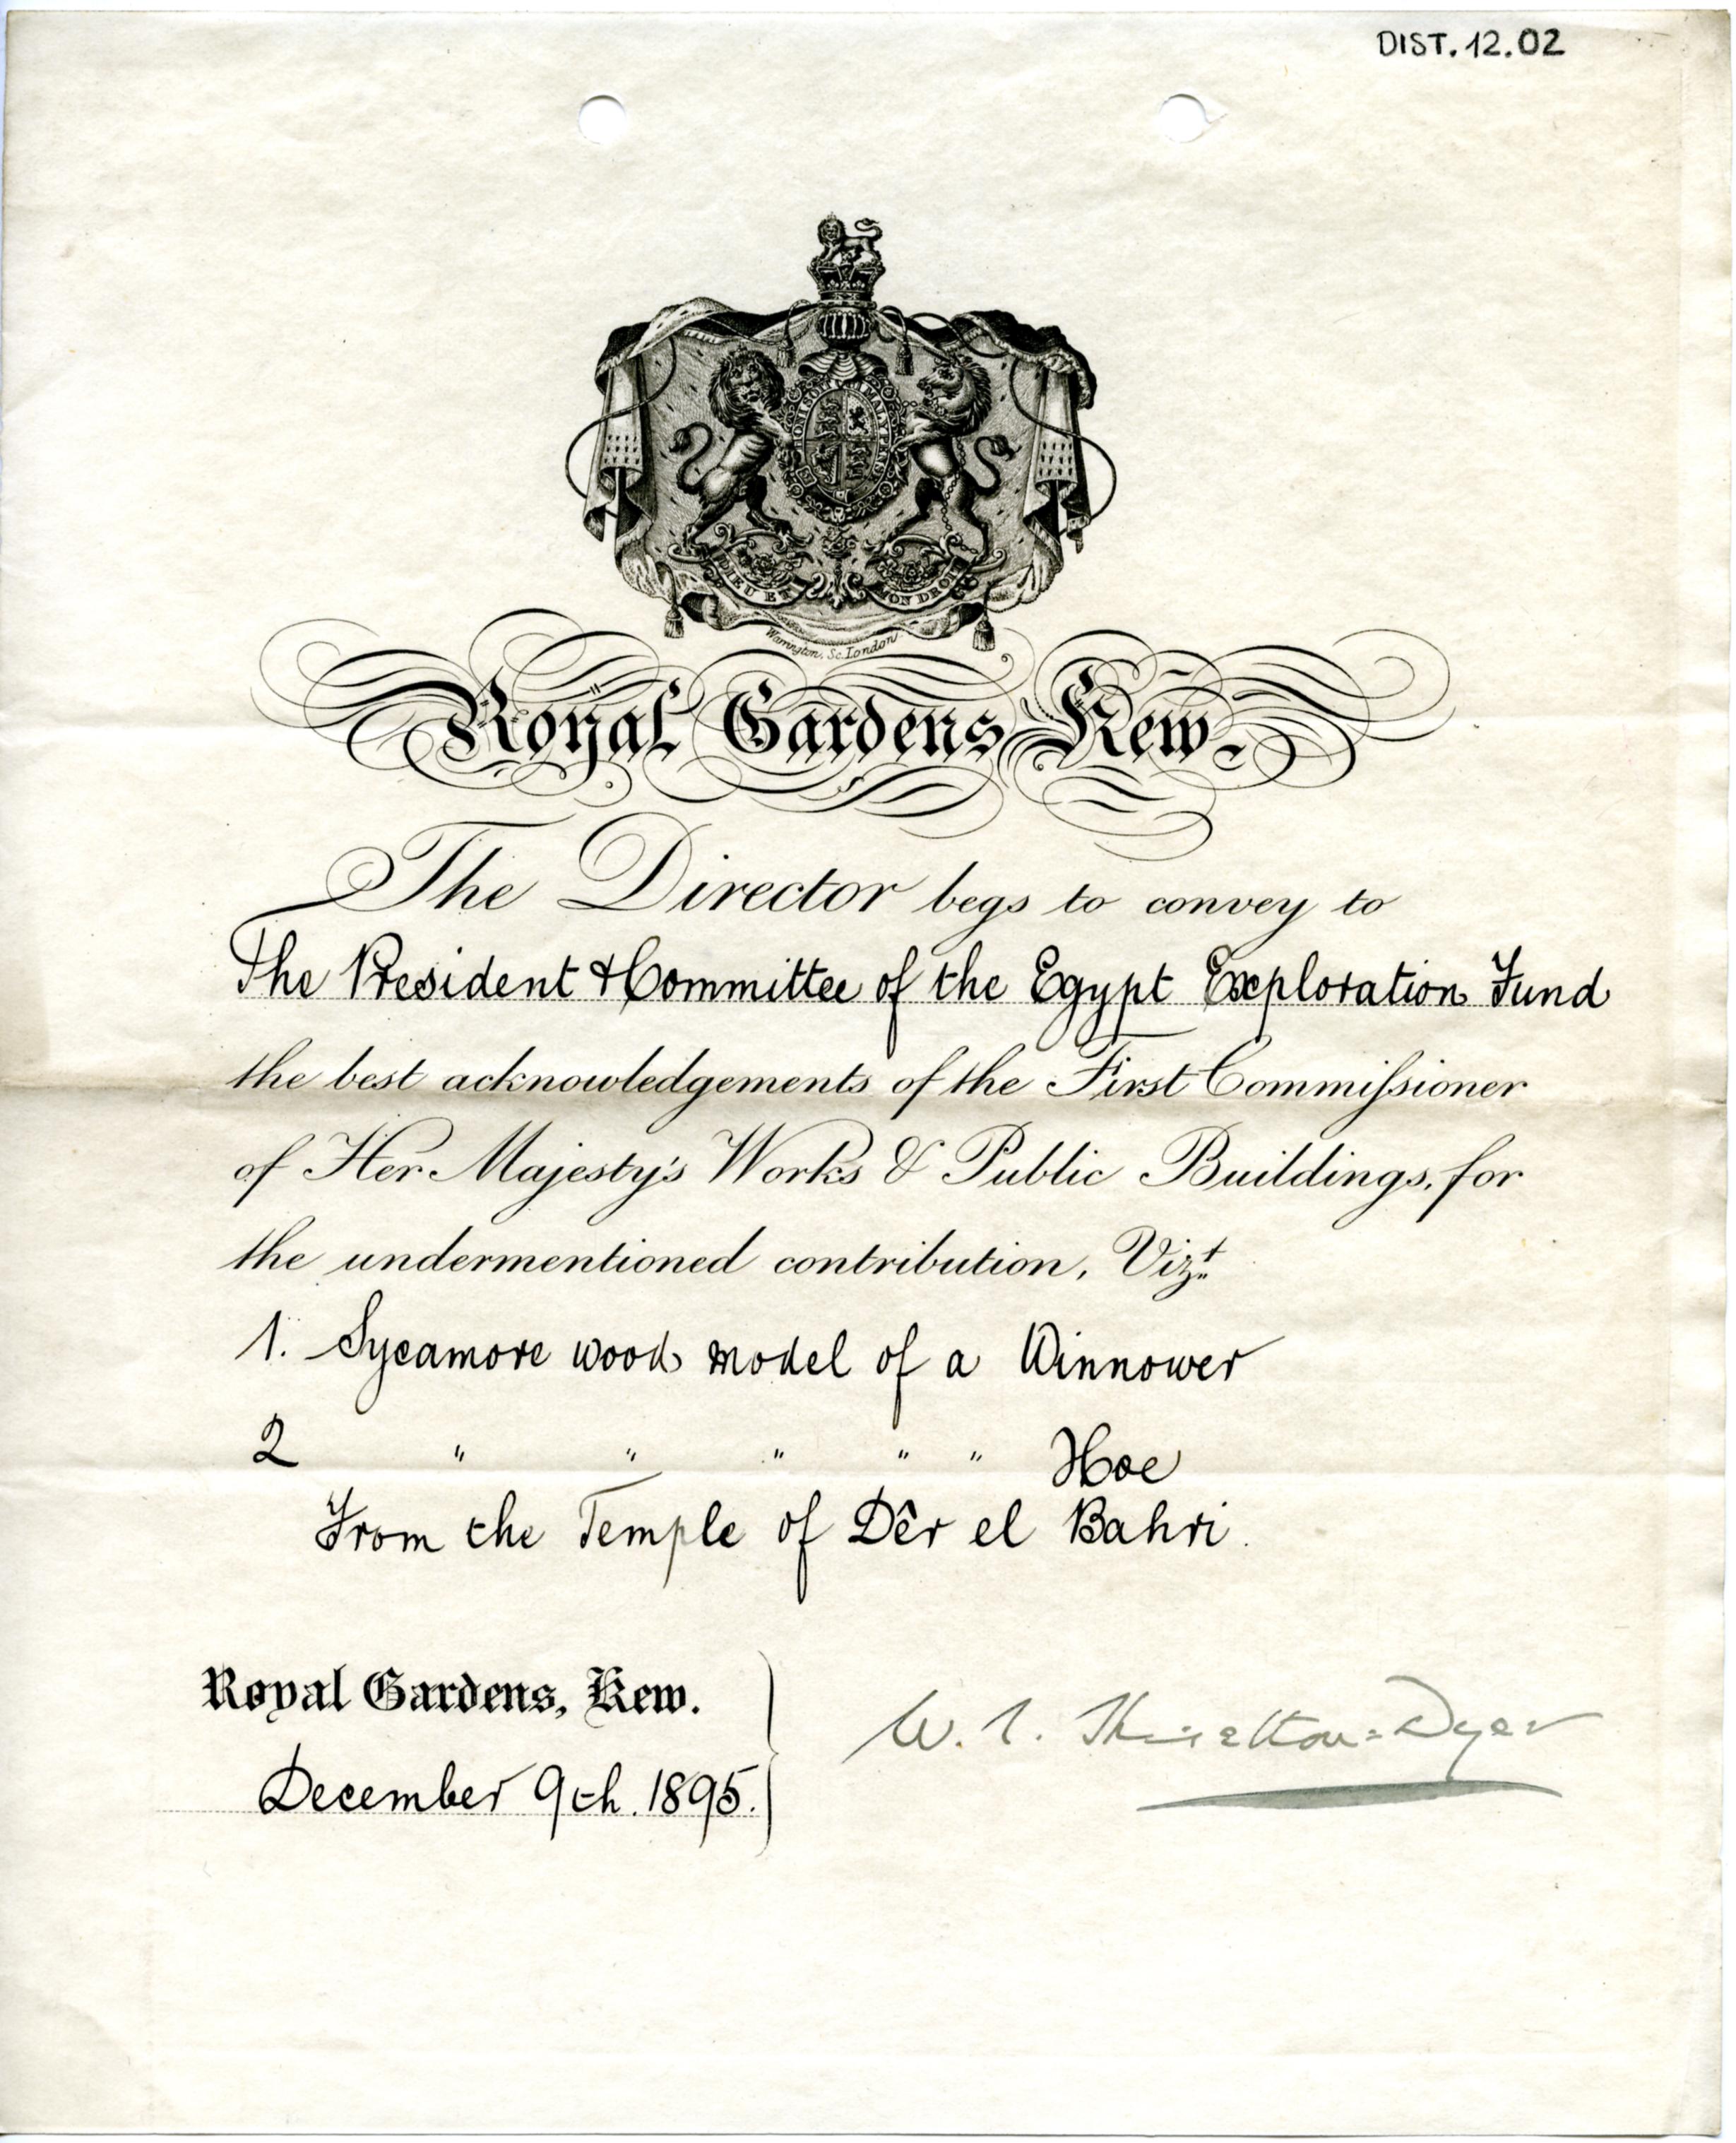 DIST. 12.02
HONI SOIT QUI MAL Y PENSE
DIEU ET MON DROIT
Warrington, Sc. London
Royal Gardens Kew.
The Director begs to convey to
The President & Committee of the Egypt Exploration Fund
the best acknowledgements of the First Commissioner
of Her Majesty's Works & Public Buildings, for
the undermentioned contribution, Vizt.
1. Sycamore wood model of a Winnower
2 " " " " " Hoe
From the Temple of Dêr el Bahri.
Royal Gardens, Kew.
December 9th. 1895.
W. T. Thiselton-Dyer